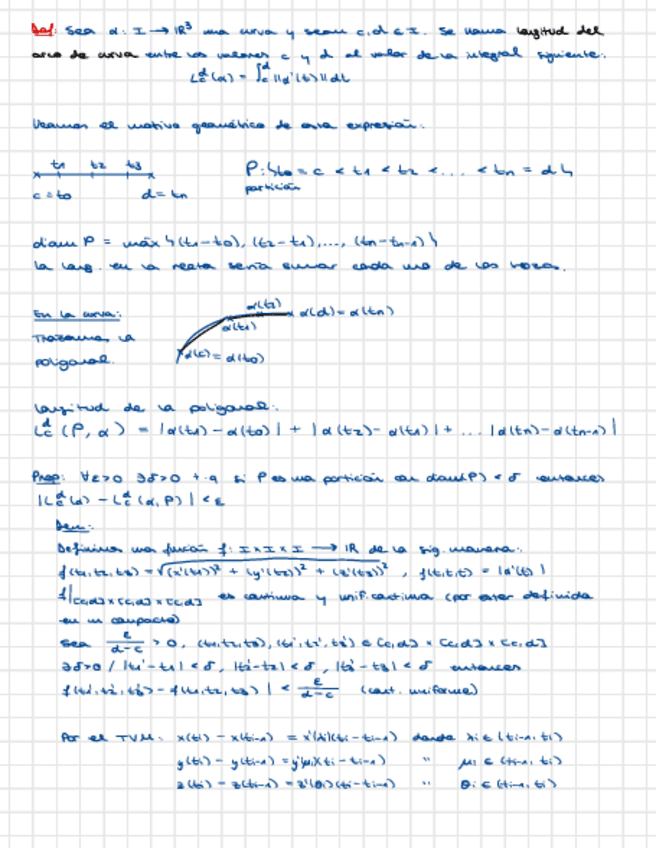 Def: Sea α: I → IR³ una curva y sean c,d ∈ I. Se llama longitud del
arco de curva entre los valores c y d al valor de la integral siguiente:
L_c^d(α) = ∫_c^d ||α'(t)|| dt
Veamos el motivo geométrico de esta expresión:
t1 t2 t3
c = t0 d = tn
P: {t0 = c < t1 < t2 < ... < tn = d}
partición
diam P = máx {(t1-t0), (t2-t1), ..., (tn-tn-1)}
La long. en la recta sería sumar cada uno de los trozos.
En la curva:
Trazamos la
poligonal.
α(t2) α(d) = α(tn)
α(t1)
α(c) = α(t0)
Longitud de la poligonal:
L_c^d (P, α) = |α(t1) - α(t0)| + |α(t2) - α(t1)| + ... |α(tn) - α(tn-1)|
Prop: ∀ε>0 ∃δ>0 t.q si P es una partición con diam(P) < δ entonces
|L_c^d(α) - L_c^d(α, P)| < ε
Dem:
Definimos una función f: I×I×I → IR de la sig. manera:
f(t1,t2,t3) = √(x'(t1))² + (y'(t2))² + (z'(t3))² , f(t,t,t) = |α'(t)|
f|[c,d]×[c,d]×[c,d] es continua y unif. continua (por estar definida
en un compacto)
Sea ε/(d-c) > 0, (t1,t2,t3), (t1',t2',t3') ∈ [c,d] × [c,d] × [c,d]
∃δ>0 / |t1' - t1| < δ, |t2' - t2| < δ, |t3' - t3| < δ entonces
f(t1',t2',t3') - f(t1,t2,t3) | < ε/(d-c) (cont. uniforme)
Por el TVM: x(ti) - x(ti-1) = x'(λi)(ti - ti-1) donde λi ∈ (ti-1, ti)
y(ti) - y(ti-1) = y'(μi)(ti - ti-1) " μi ∈ (ti-1, ti)
z(ti) - z(ti-1) = z'(θi)(ti - ti-1) " θi ∈ (ti-1, ti)